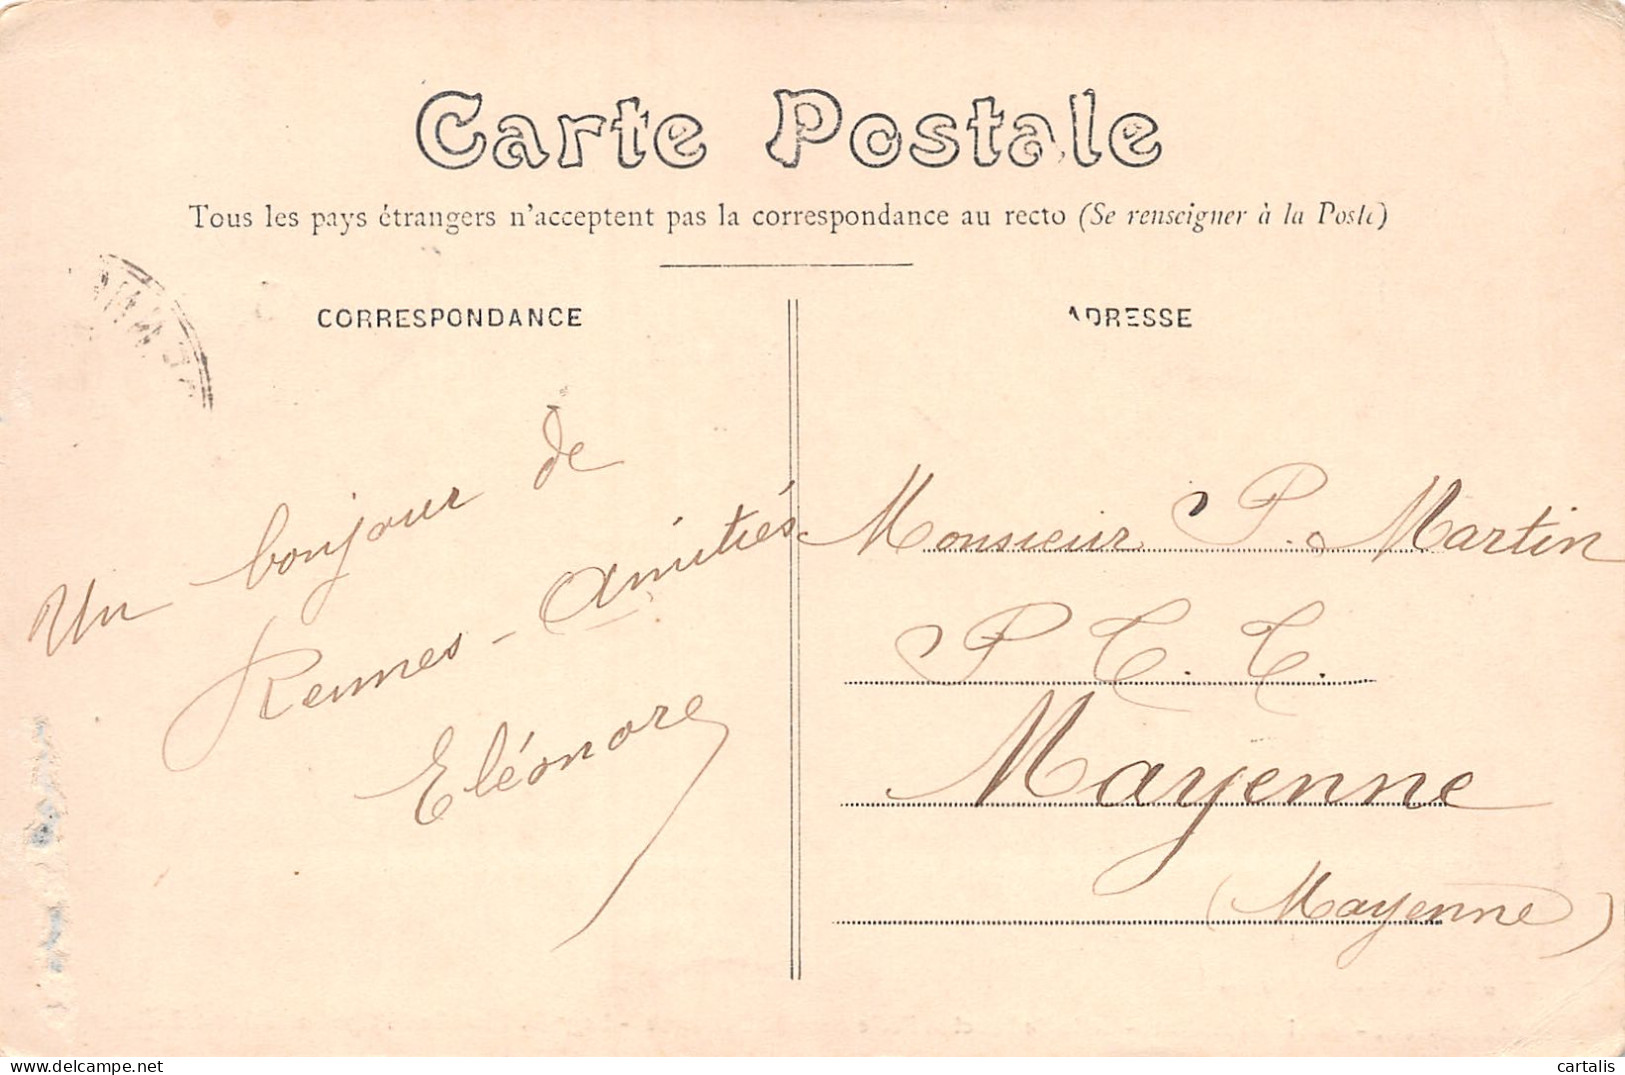 Carte Postale
Tous les pays étrangers n'acceptent pas la correspondance au recto (Se renseigner à la Poste)
CORRESPONDANCE
Un bonjour de
Rennes - Amitiés
Eléonore
ADRESSE
Monsieur P. Martin
P. C. C.
Mayenne
(Mayenne)
cartalis